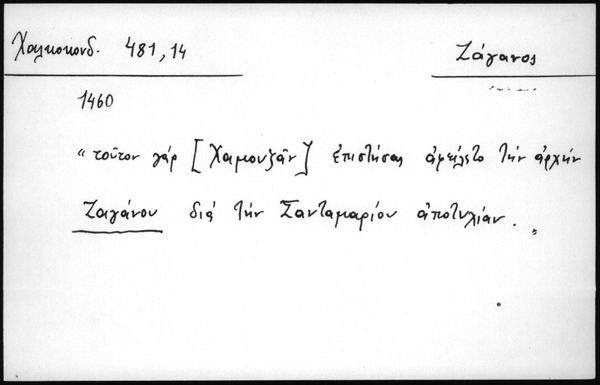 Χαλκοκονδ. 481,14
Ζάγανος
1460
“ τοῦτον γάρ [Χαμουζᾶν] ἐπιστήσας ἀφείλετο τήν ἀρχήν
Ζαγάνου διά τήν Σανταμαρίου ἀποτυχίαν. „